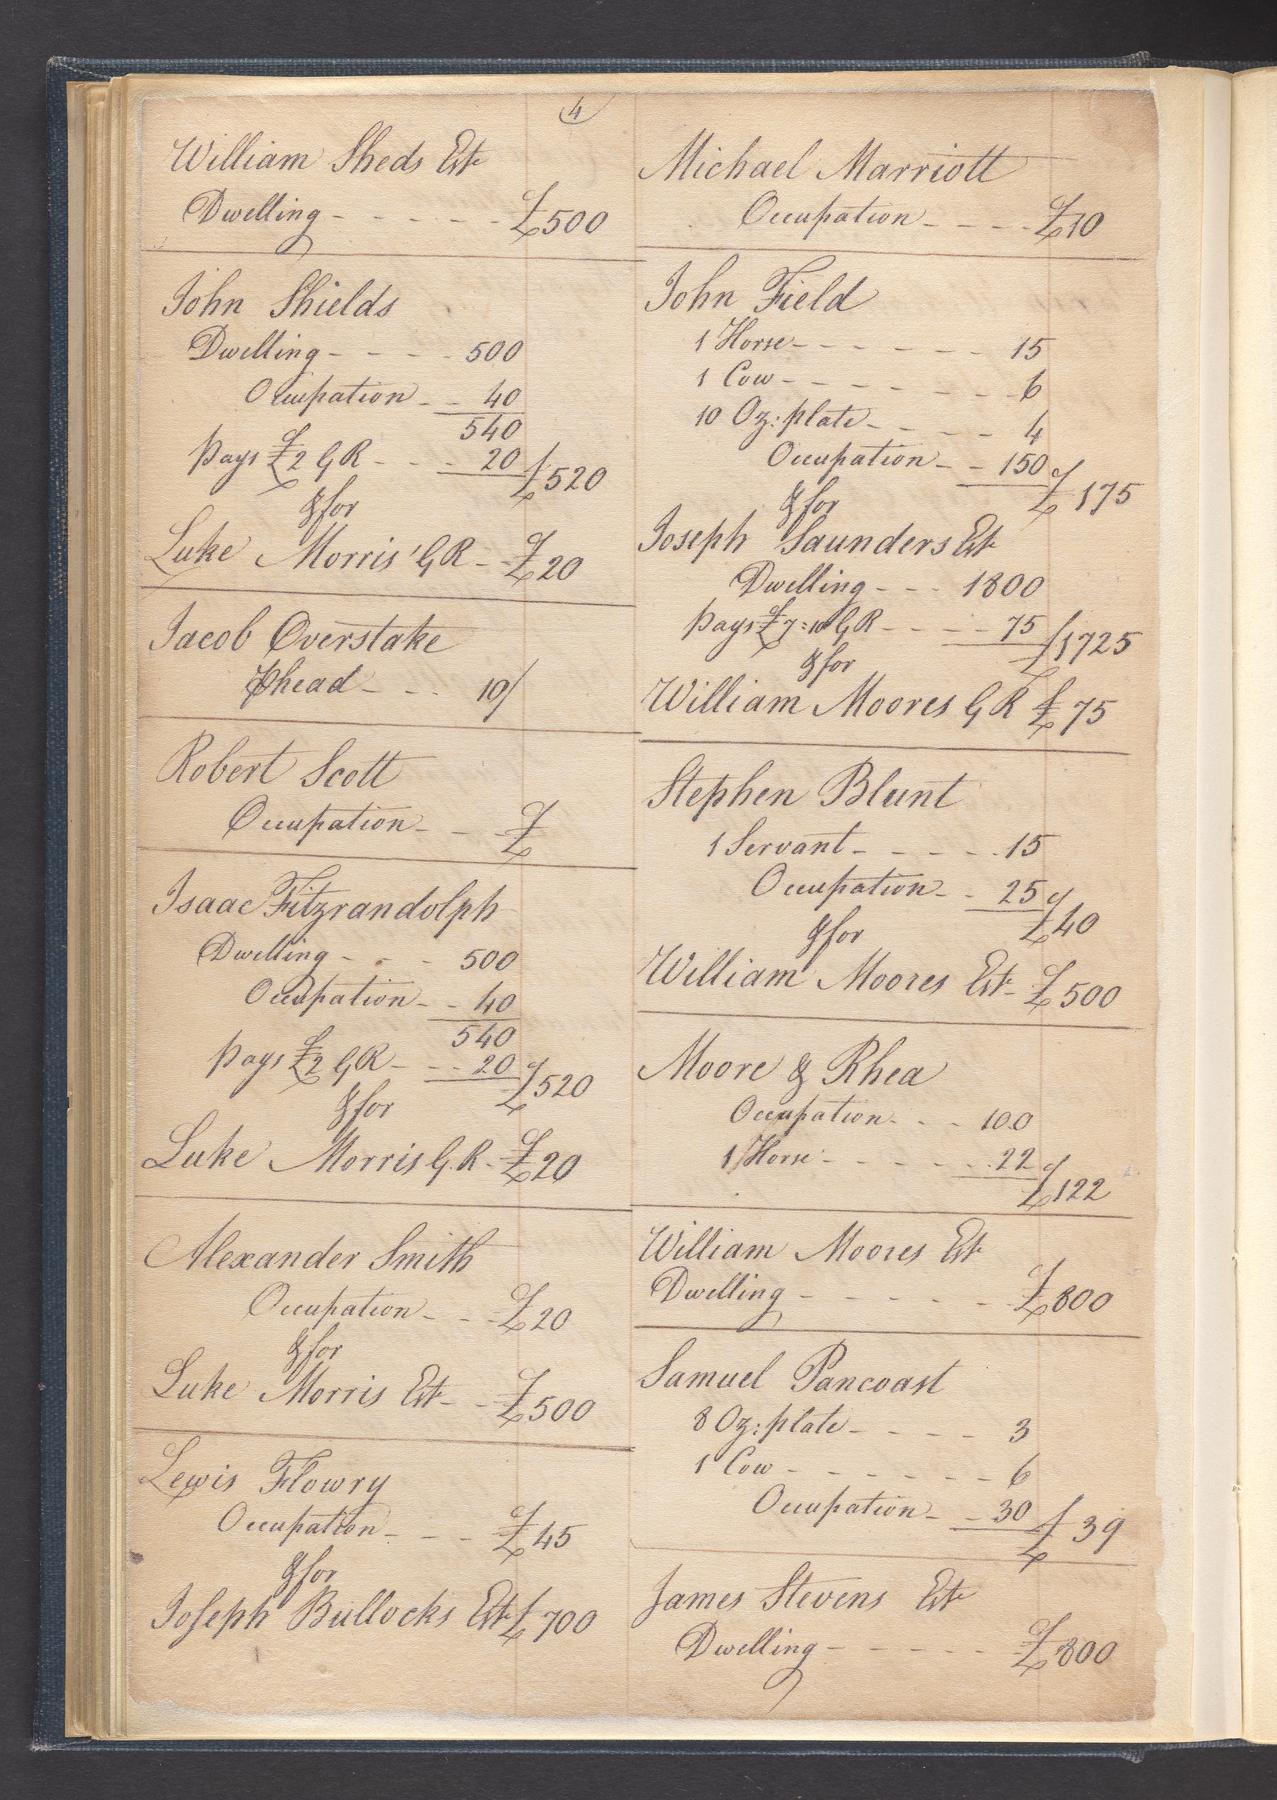 4
William Sheds Est
Dwelling - - - - - - £500
John Shields
Dwelling - - - - 500
Occupation - - 40
540
pays £2 G R - - - 20 £520
& for
Luke Morris' G R - - £20
Jacob Overstake
Phead - - - 10/
Robert Scott
Occupation - - £
Isaac Fitzrandolph
Dwelling - - - 500
Occupation - - 40
540
pays £2 G R - - - 20 £520
& for
Luke Morris G. R - £20
Alexander Smith
Occupation - - - £20
& for
Luke Morris Est - - £500
Lewis Flowry
Occupation - - - - £45
& for
Joseph Bullocks Est £700
Michael Marriott
Occupation - - - - £10
John Field
1 Horse - - - - - - 15
1 Cow - - - - - - - 6
10 Oz: plate - - - - 4
Occupation - - 150 £175
& for
Joseph Saunders Est
Dwelling - - - 1800
pays £7:10 G R - - - - 75 £1725
& for
William Moores G R £75
Stephen Blunt
1 Servant - - - - - 15
Occupation - - 25 £40
& for
William Moores Est - £500
Moore & Rhea
Occupation - - - 100
1 Horse - - - - - - 22 £122
William Moores Est
Dwelling - - - - - - £800
Samuel Pancoast
8 Oz: plate - - - - 3
1 Cow - - - - - - - 6
Occupation - - 30 £39
James Stevens Est
Dwelling - - - - - - £800